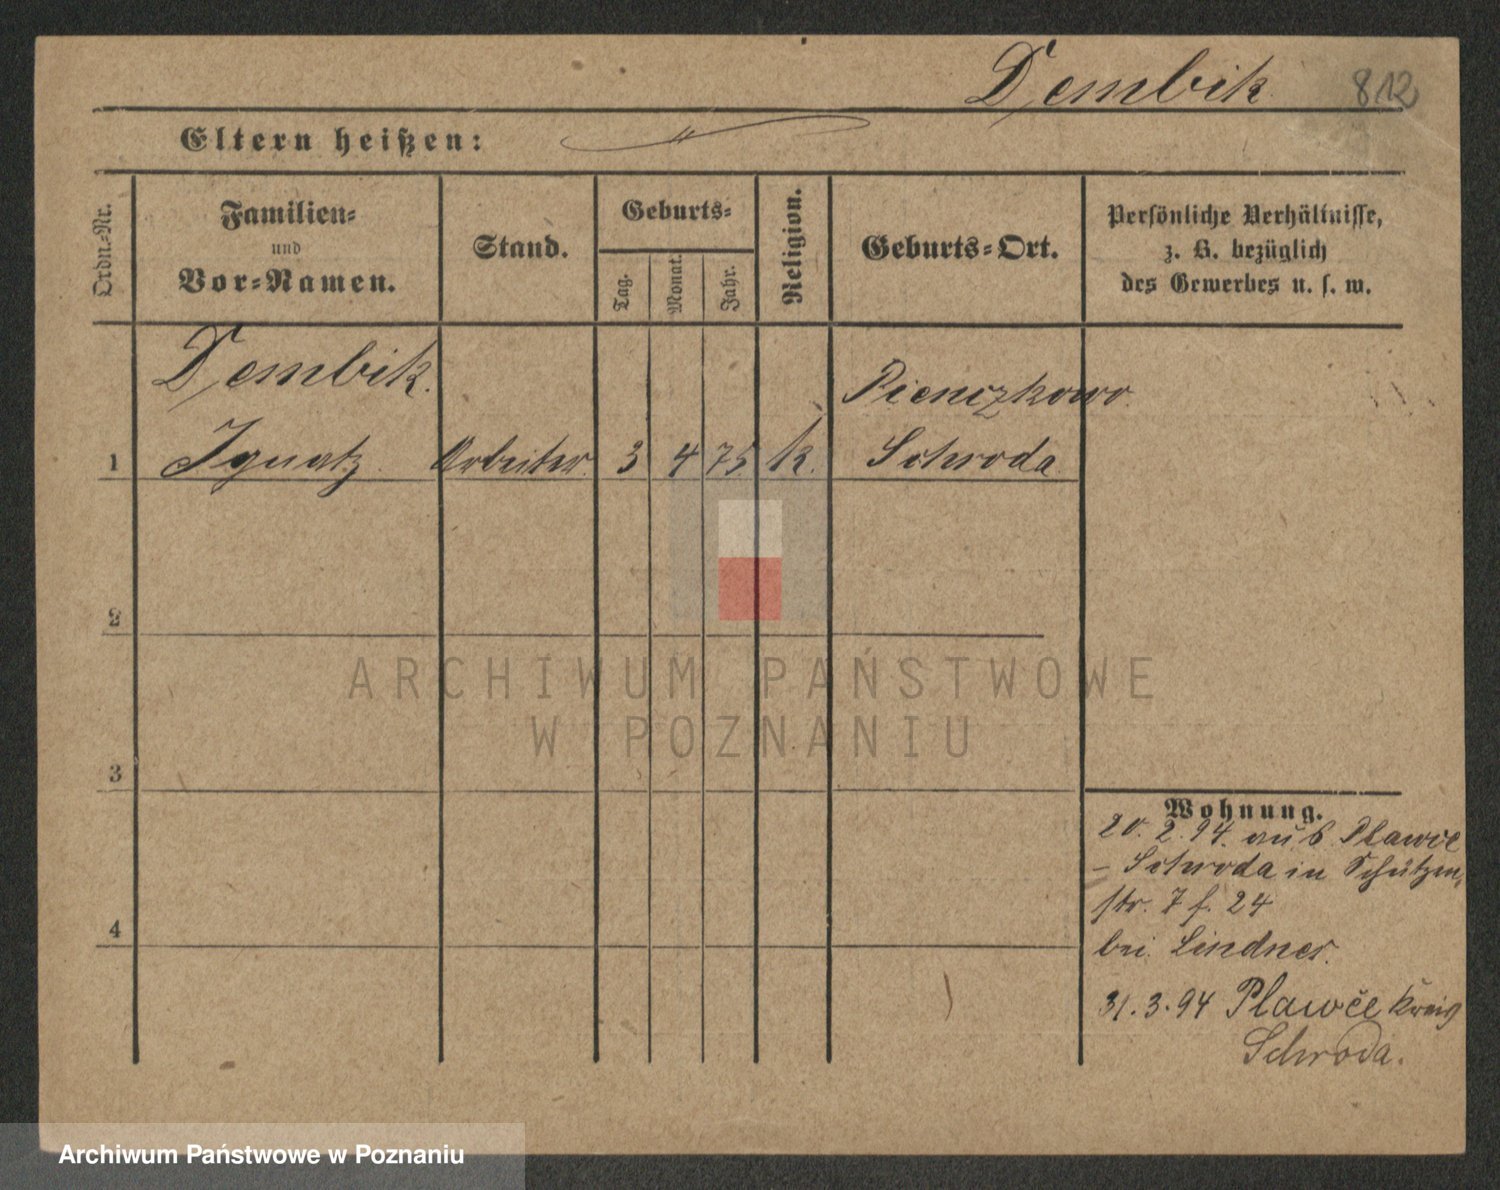 Dembik 812
Eltern heißen:
Ordn.-Nr.
Familien-
und
Vor-Namen.
Stand.
Geburts-
Tag.
Monat.
Jahr.
Religion.
Geburts-Ort.
Persönliche Verhältnisse,
z. B. bezüglich
des Gewerbes u. s. w.
Dembik.
Pienczkowo.
1 Ignatz Arbeiter. 3 4 75. k. Schroda
2
ARCHIWUM PAŃSTWOWE
W POZNANIU
3
Wohnung.
20. 2. 94. aus Plawce
- Schroda in Schützen
str. 7 f. 24
4
bei Lindner.
31. 3. 94 Plawce Kreis
Schroda.
Archiwum Państwowe w Poznaniu